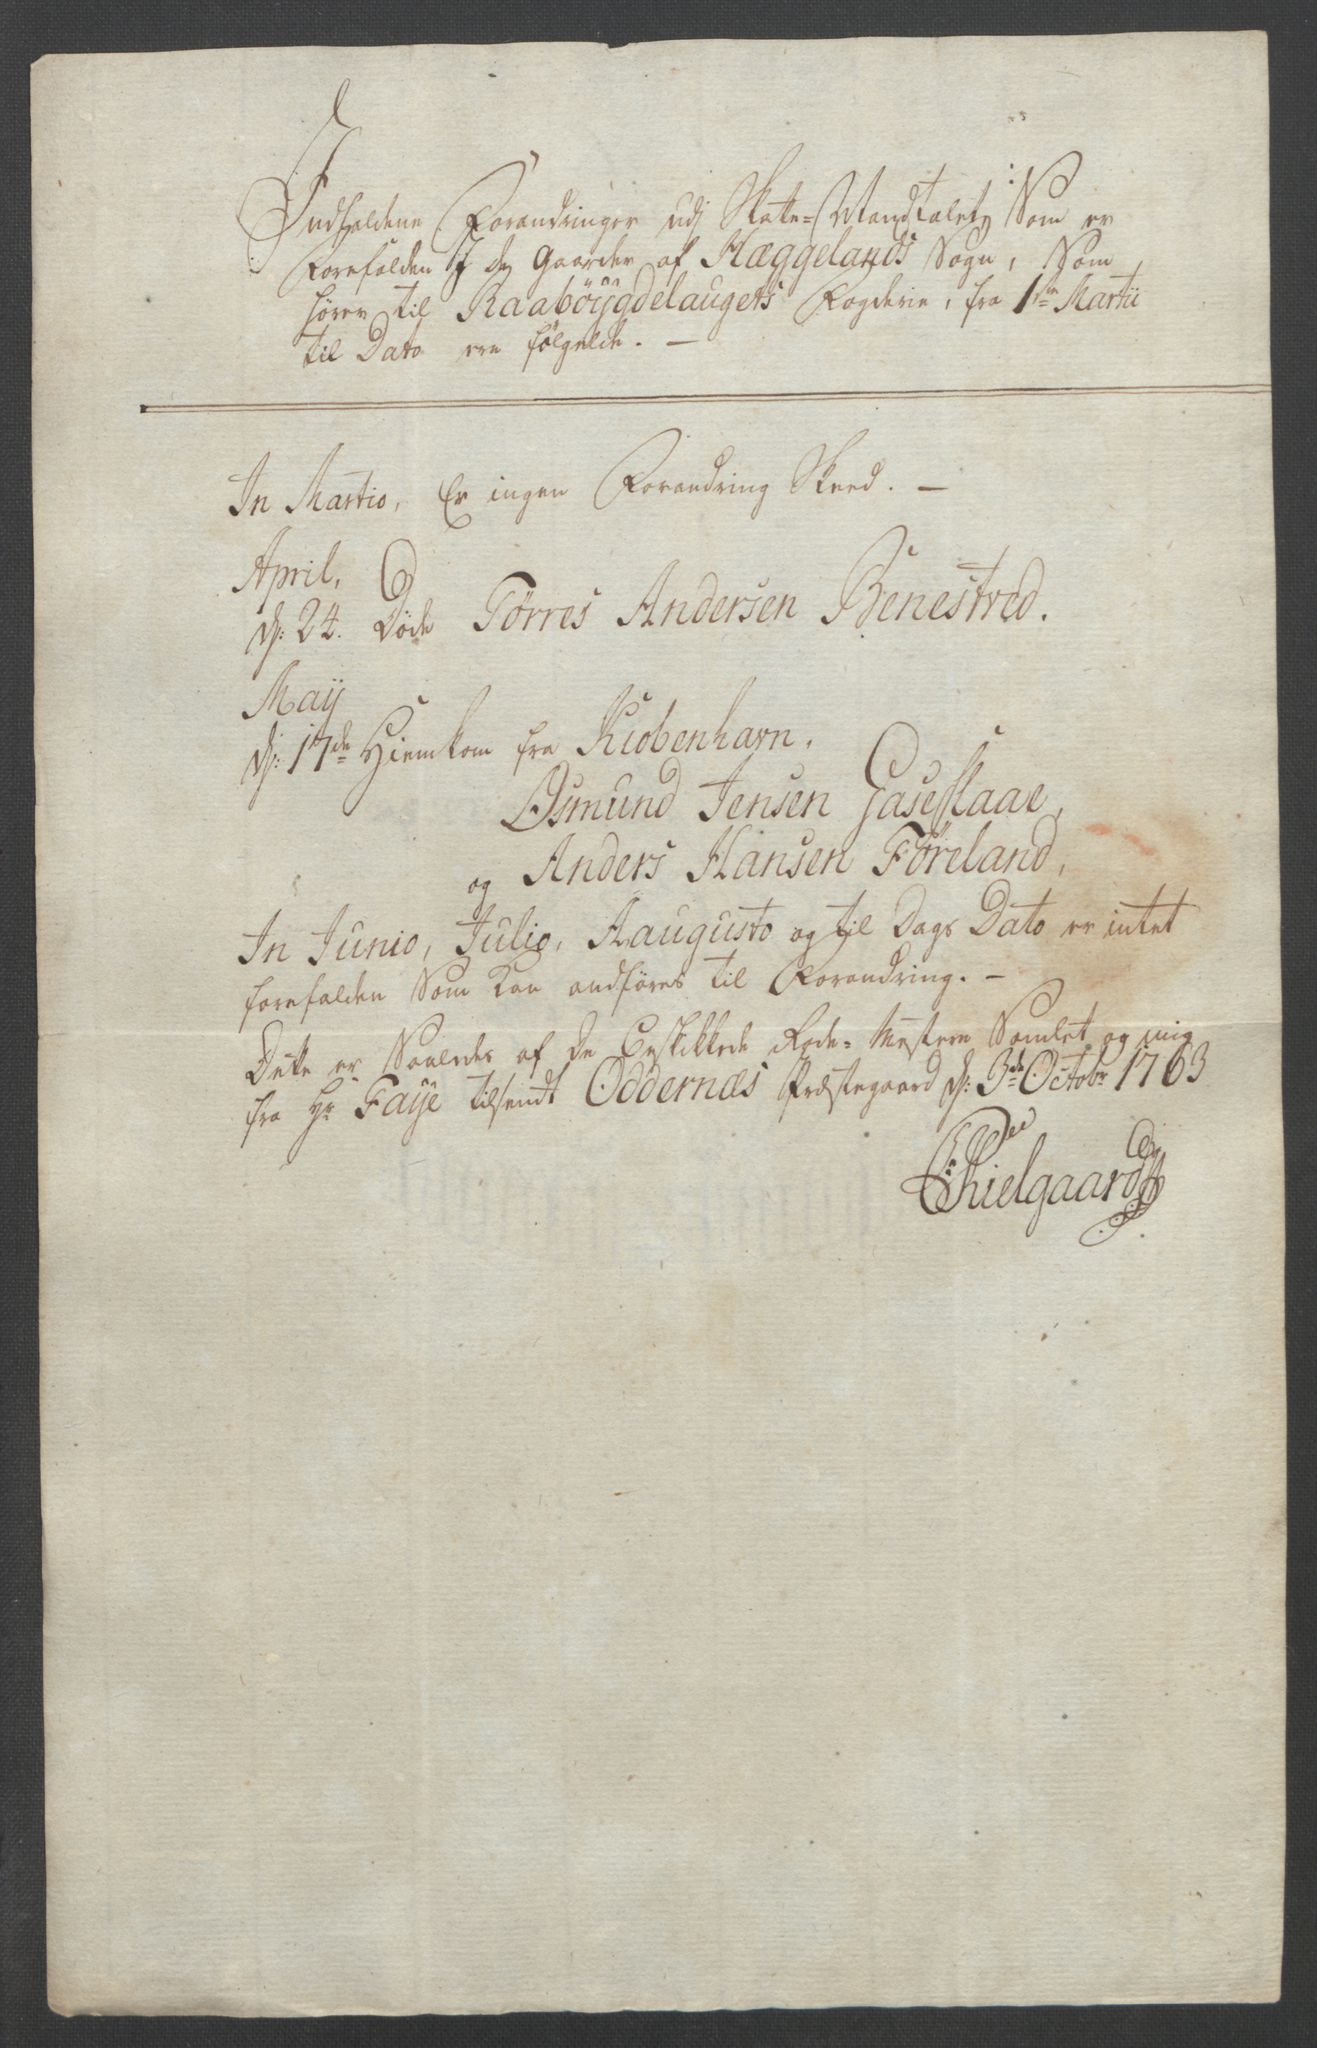 Indfaldene Forandringer udj Skatte-Mandtalet, Som er
Forefalden J de Gaarder af Hæggelands Sogn, Som
hører til Raaböÿgdelaugets Fogderie, fra 1ste Martii
til Dato ere følgelde. —
In Martio, Er ingen Forandring Skeed. —
April,
d: 24. Døde Tørres Andersen Benestved.
Maÿ
d: 17de Hiemkom fra Kiobenhavn,
Osmund Jensen Gaseflaae,
og Anders Hansen Føreland,
In Junio, Julio, Aaugusto og til Dags Dato er intet
forefalden Som kan andføres til Forandring. —
Dette er Saaledes af de Beskikkede Rode-Mestere Samlet og mig
fra Hr Faÿe tilsendt Oddernæs Præstegaard d: 3de Octobr 1763
Thielgaard